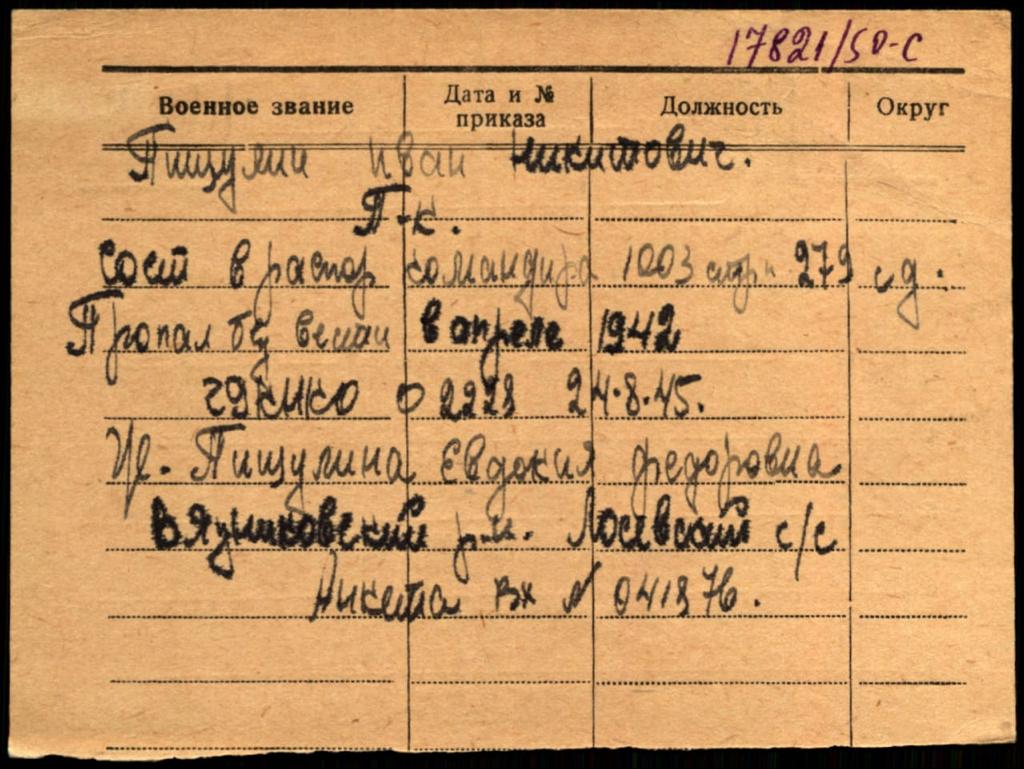 17821/50-с
Военное звание Дата и № приказа Должность Округ
Пищулин Иван Никитович.
П-к.
Сост в распор командира 1003 стр п 279 сд.
Пропал без вести в апреле 1942
ГУКНКО 0 2223 24.8.45.
Пищулина Евдокия Федоровна
Вязниковский р.н. Лосевский с/с
Анкета Вх № 041376.